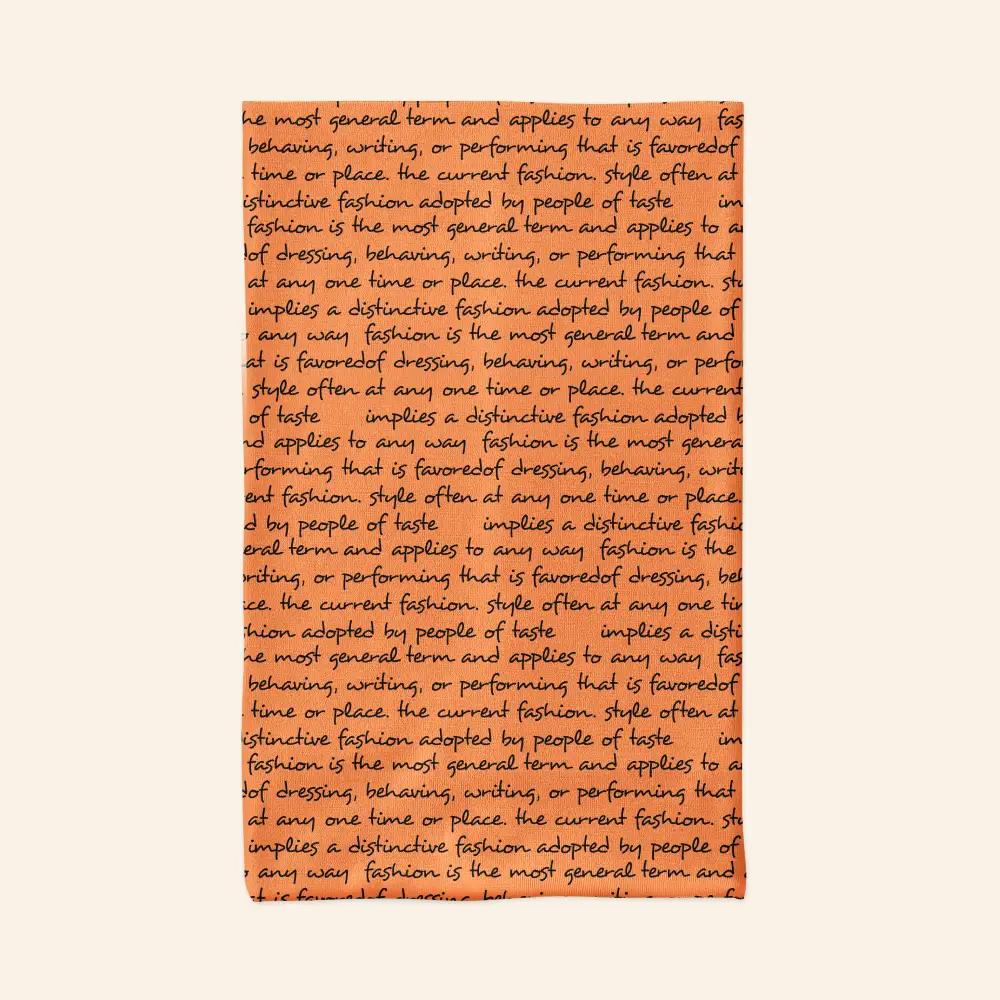 he most general term and applies to any way fas
behaving, writing, or performing that is favoredof
time or place. the current fashion. style often at
istinctive fashion adopted by people of taste im
fashion is the most general term and applies to a
of dressing, behaving, writing, or performing that
at any one time or place. the current fashion. sty
implies a distinctive fashion adopted by people of
any way fashion is the most general term and
at is favoredof dressing, behaving, writing, or perfo
style often at any one time or place. the current
of taste implies a distinctive fashion adopted b
nd applies to any way fashion is the most genera
rforming that is favoredof dressing, behaving, writ
ent fashion. style often at any one time or place.
d by people of taste implies a distinctive fashio
eral term and applies to any way fashion is the
writing, or performing that is favoredof dressing, beh
ce. the current fashion. style often at any one tim
hion adopted by people of taste implies a disti
he most general term and applies to any way fas
behaving, writing, or performing that is favoredof
time or place. the current fashion. style often at
istinctive fashion adopted by people of taste im
fashion is the most general term and applies to a
of dressing, behaving, writing, or performing that
at any one time or place. the current fashion. sty
implies a distinctive fashion adopted by people of
any way fashion is the most general term and
at is favoredof dressing,